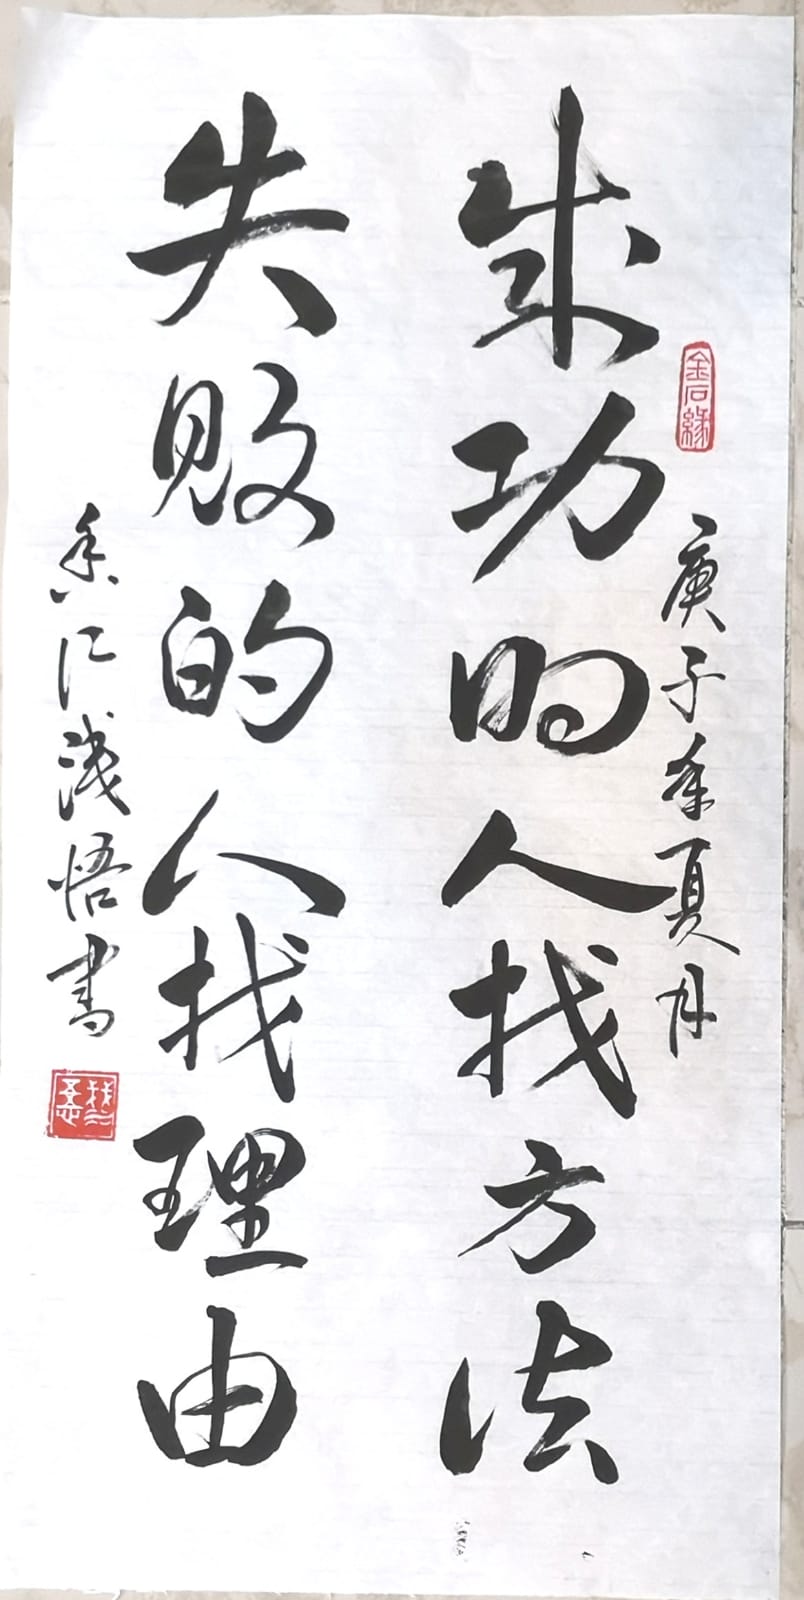 金石緣
庚子年夏月
成功的人找方法
失败的人找理由
香江浅悟書